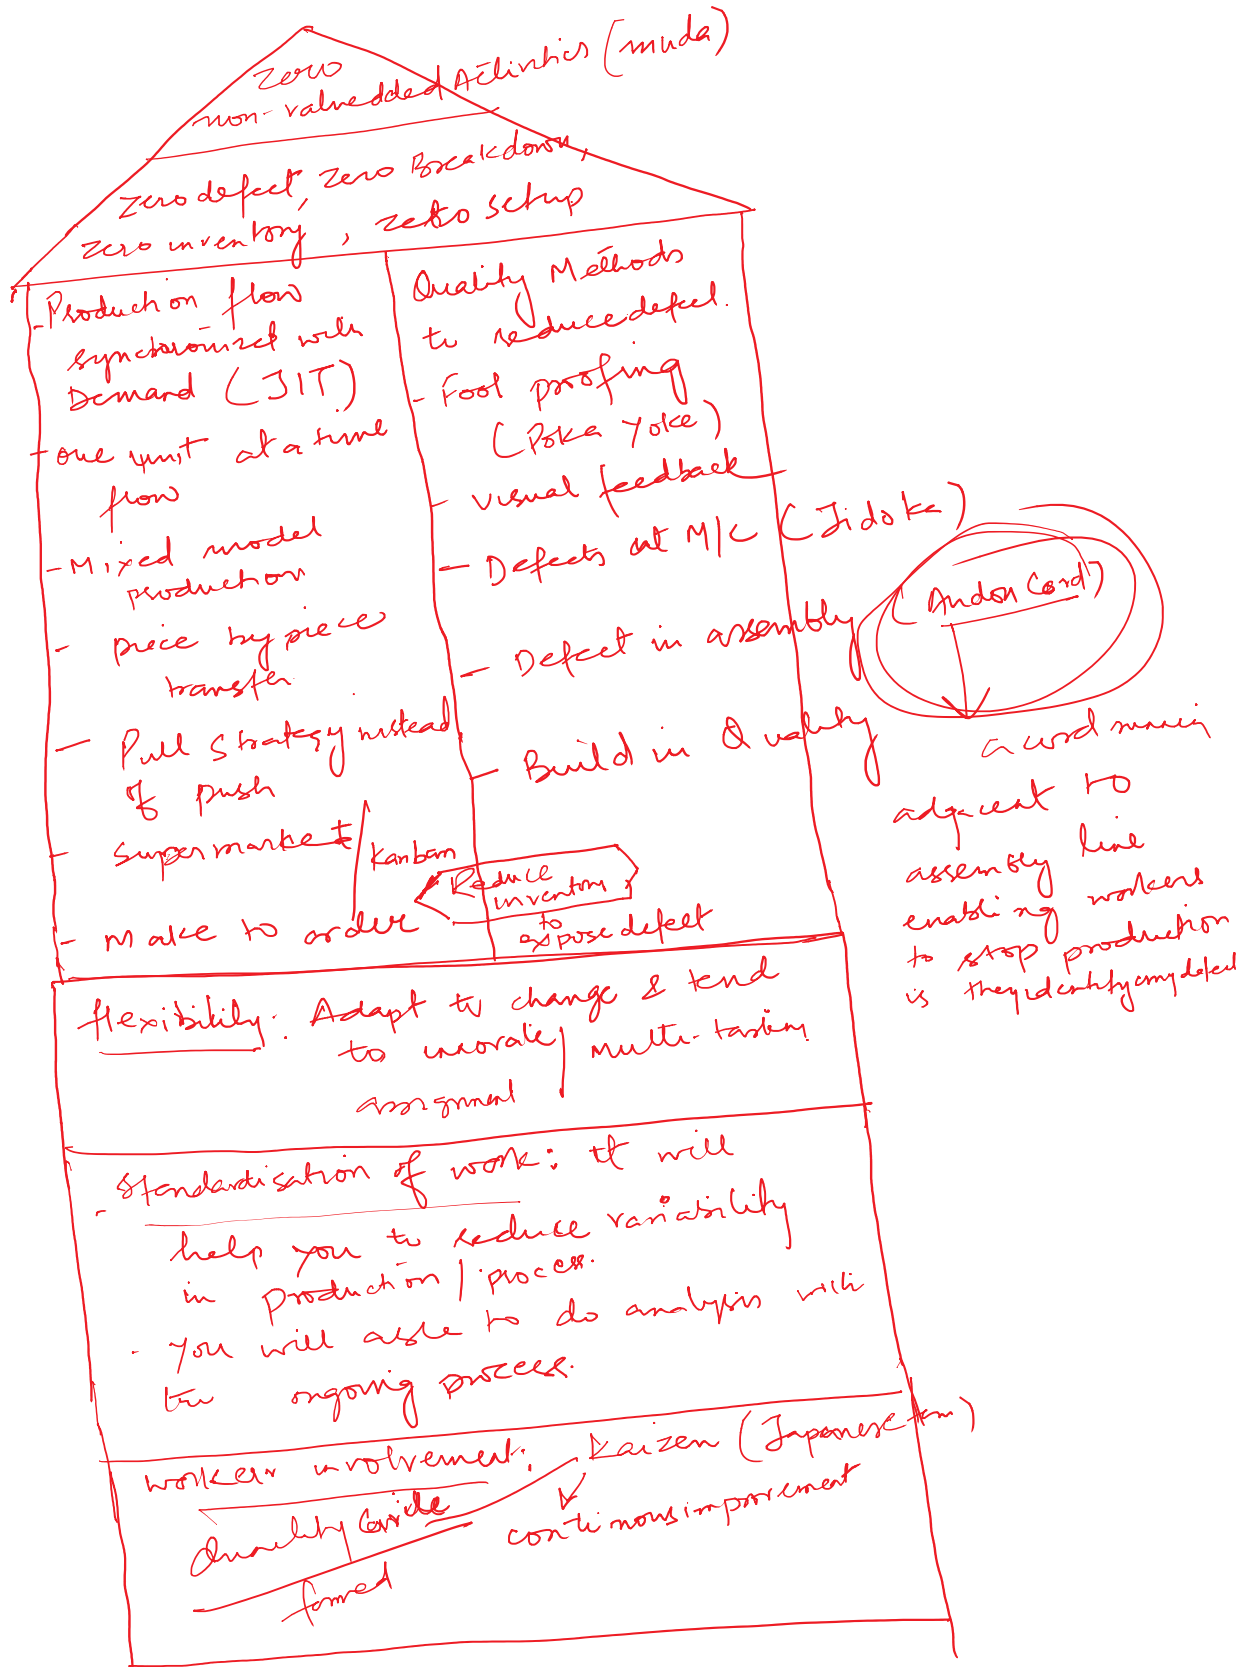 Zero
non-valuedded Activities (muda)
Zero defect, Zero Breakdown,
Zero inventory, zero setup
- Production flow
synchronized with
Demand (JIT)
- one unit at a time
flow
- Mixed model
production
- piece by piece
transfer
- Pull Strategy instead
of push
- Supermarket
Kanban
- Make to order
Quality Methods
to reduce defect.
- Fool proofing
(Poka Yoke)
- visual feedback
- Defects at M/C (Jidoka)
- Defect in assembly
(Andon Cord)
- Build in Quality
Reduce
inventory
to
expose defect
a cord running
adjacent to
assembly line
enabling workers
to stop production
is they identify any defect
flexibility: Adapt to change & tend
to innovate / multi-tasking
assignment
- Standardisation of work: It will
help you to reduce variability
in production / process.
- You will able to do analysis with
the ongoing process.
worker involvement: Kaizen (Japanese term)
Quality Circle
continous improvement
formed